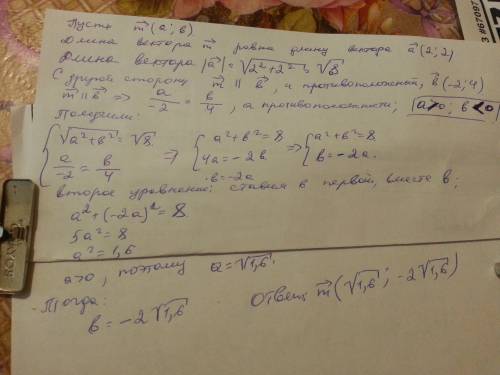 Пусть m⃗(a; в)
Длина вектора m⃗ равна длину вектора a⃗(2; 2)
Длина вектора |a⃗| = √(2²+2²) = √8
С другой стороны m⃗ ∥ в⃗, а противоположный, в⃗(-2; 4)
m⃗ ∥ в⃗ ⇒ a/-2 = в/4, а противоположности; a>0; в<0
Получили:
{ √(a²+в²) = √8 ⇒ { a²+в² = 8 ⇒ { a²+в² = 8
a/-2 = в/4 4a = -2в в = -2a.
в = -2a
второе уравнение ставим в первой, вместе в;
a² + (-2a)² = 8
5a² = 8
a² = 1,6
a>0, поэтому a = √1,6.
Тогда: Ответ: m⃗(√1,6; -2√1,6)
в = -2√1,6